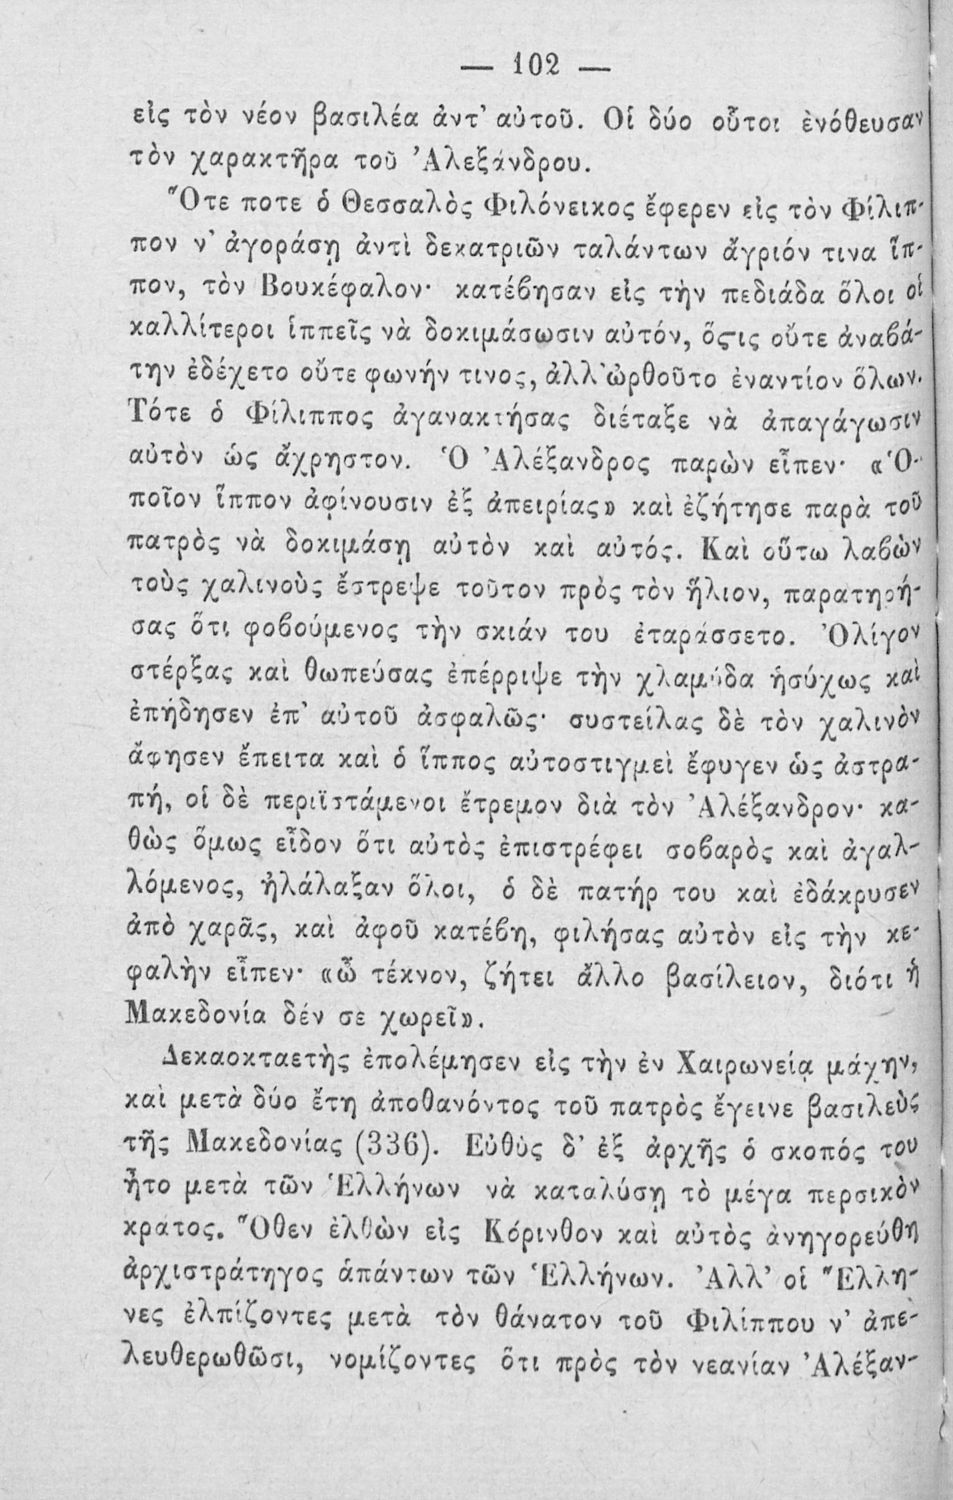 — 102 —
εἰς τὸν νέον βασιλέα ἀντ' αὐτοῦ. Οἱ δύο οὗτοι ἐνόθευσαν
τὸν χαρακτῆρα τοῦ Ἀλεξάνδρου.
Ὅτε ποτε ὁ Θεσσαλὸς Φιλόνεικος ἔφερεν εἰς τὸν Φίλιπ-
πον ν' ἀγοράσῃ ἀντὶ δεκατριῶν ταλάντων ἄγριόν τινα ἵπ-
πον, τὸν Βουκέφαλον· κατέβησαν εἰς τὴν πεδιάδα ὅλοι οἱ
καλλίτεροι ἱππεῖς νὰ δοκιμάσωσιν αὐτόν, ὅςτις οὔτε ἀναβά-
την ἐδέχετο οὔτε φωνήν τινος, ἀλλ' ὠρθοῦτο ἐναντίον ὅλων.
Τότε ὁ Φίλιππος ἀγανακτήσας διέταξε νὰ ἀπαγάγωσιν
αὐτὸν ὡς ἄχρηστον. Ὁ Ἀλέξανδρος παρὼν εἶπεν· «Ὁ-
ποῖον ἵππον ἀφίνουσιν ἐξ ἀπειρίας» καὶ ἐζήτησε παρὰ τοῦ
πατρὸς νὰ δοκιμάσῃ αὐτὸν καὶ αὐτός. Καὶ οὕτω λαβὼν
τοὺς χαλινοὺς ἔστρεψε τοῦτον πρὸς τὸν ἥλιον, παρατηρή-
σας ὅτι φοβούμενος τὴν σκιάν του ἐταράσσετο. Ὀλίγον
στέρξας καὶ θωπεύσας ἐπέρριψε τὴν χλαμύδα ἡσύχως καὶ
ἐπήδησεν ἐπ' αὐτοῦ ἀσφαλῶς· συστείλας δὲ τὸν χαλινὸν
ἄφησεν ἔπειτα καὶ ὁ ἵππος αὐτοστιγμεὶ ἔφυγεν ὡς ἀστρα-
πή, οἱ δὲ περιϊστάμενοι ἔτρεμον διὰ τὸν Ἀλέξανδρον· κα-
θὼς ὅμως εἶδον ὅτι αὐτὸς ἐπιστρέφει σοβαρὸς καὶ ἀγαλ-
λόμενος, ἠλάλαξαν ὅλοι, ὁ δὲ πατήρ του καὶ ἐδάκρυσεν
ἀπὸ χαρᾶς, καὶ ἀφοῦ κατέβη, φιλήσας αὐτὸν εἰς τὴν κε-
φαλὴν εἶπεν· «ὦ τέκνον, ζήτει ἄλλο βασίλειον, διότι ἡ
Μακεδονία δέν σε χωρεῖ».
Δεκαοκταετὴς ἐπολέμησεν εἰς τὴν ἐν Χαιρωνείᾳ μάχην,
καὶ μετὰ δύο ἔτη ἀποθανόντος τοῦ πατρὸς ἔγεινε βασιλεὺς
τῆς Μακεδονίας (336). Εὐθὺς δ' ἐξ ἀρχῆς ὁ σκοπός του
ἦτο μετὰ τῶν Ἑλλήνων νὰ καταλύσῃ τὸ μέγα περσικὸν
κράτος. Ὅθεν ἐλθὼν εἰς Κόρινθον καὶ αὐτὸς ἀνηγορεύθη
ἀρχιστράτηγος ἁπάντων τῶν Ἑλλήνων. Ἀλλ' οἱ Ἕλλη-
νες ἐλπίζοντες μετὰ τὸν θάνατον τοῦ Φιλίππου ν' ἀπε-
λευθερωθῶσι, νομίζοντες ὅτι πρὸς τὸν νεανίαν Ἀλέξαν-